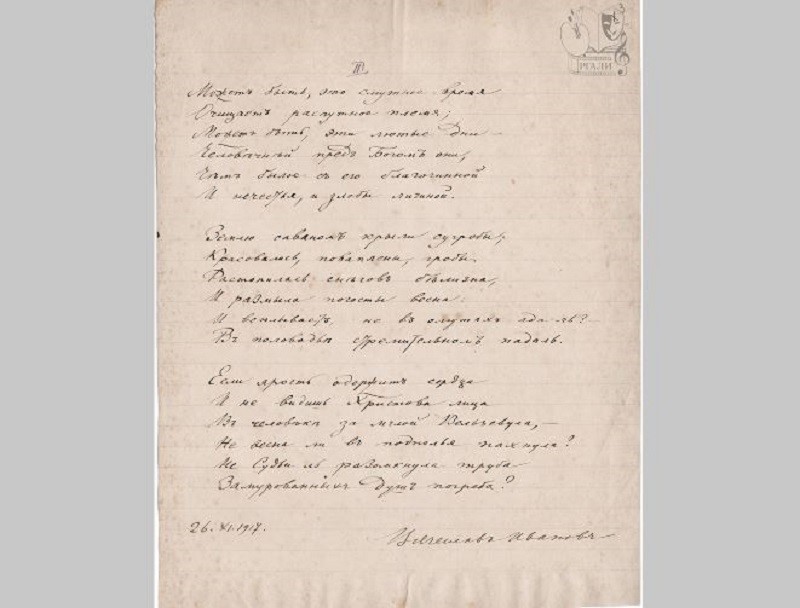 РГАЛИ
II.
Можетъ быть, это смутное время
Очищаетъ распутное племя;
Можетъ быть, эти лютые дни —
Человѣчнѣй предъ Богомъ они,
Чѣмъ былое съ его благочинной
И нечестья, и злобы личиной.
Землю саваномъ крыли сугробы;
Красовались, поваплены, гробы.
Растопилась снѣговъ бѣлизна,
И размыла погосты весна:
И всплываетъ, не въ омутахъ ада ль? —
Въ половодьи стремительномъ падаль.
Если ярость одержитъ сердца
И не видишь Христова лица
Въ человѣкѣ за мглой Вельзевула, —
Не весна ли въ подполья пахнула?
Не Судьи ль разомкнула труба
Замурованныхъ душъ погреба?
26. XI. 1917.
Вячеславъ Ивановъ